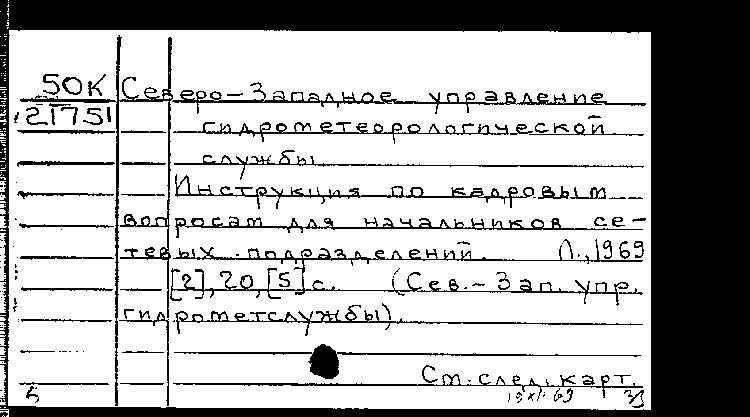 50К Северо-Западное управление
21751 гидрометеорологической
службы
Инструкция по кадровым
вопросам для начальников се-
тевых подразделений. Л., 1969
[2], 20, [5] с. (Сев.-Зап. упр.
гидрометслужбы).
См. след. карт.
5